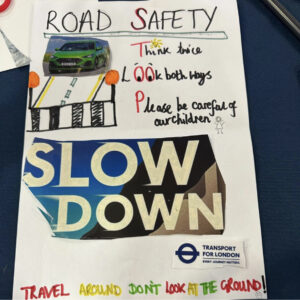 ROAD SAFETY
Think twice
LOOk both ways
Please be careful of
our children
SLOW
DOWN
TRANSPORT
FOR LONDON
EVERY JOURNEY MATTERS
TRAVEL AROUND DON'T LOOK AT THE GROUND!